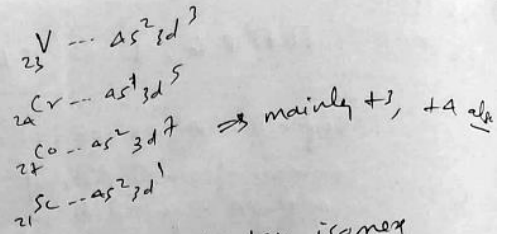 23V --- 4s² 3d³
24Cr --- 4s¹ 3d⁵
27Co -- 4s² 3d⁷ ⇒ mainly +3, +4 also
21Sc -- 4s² 3d¹
isomer